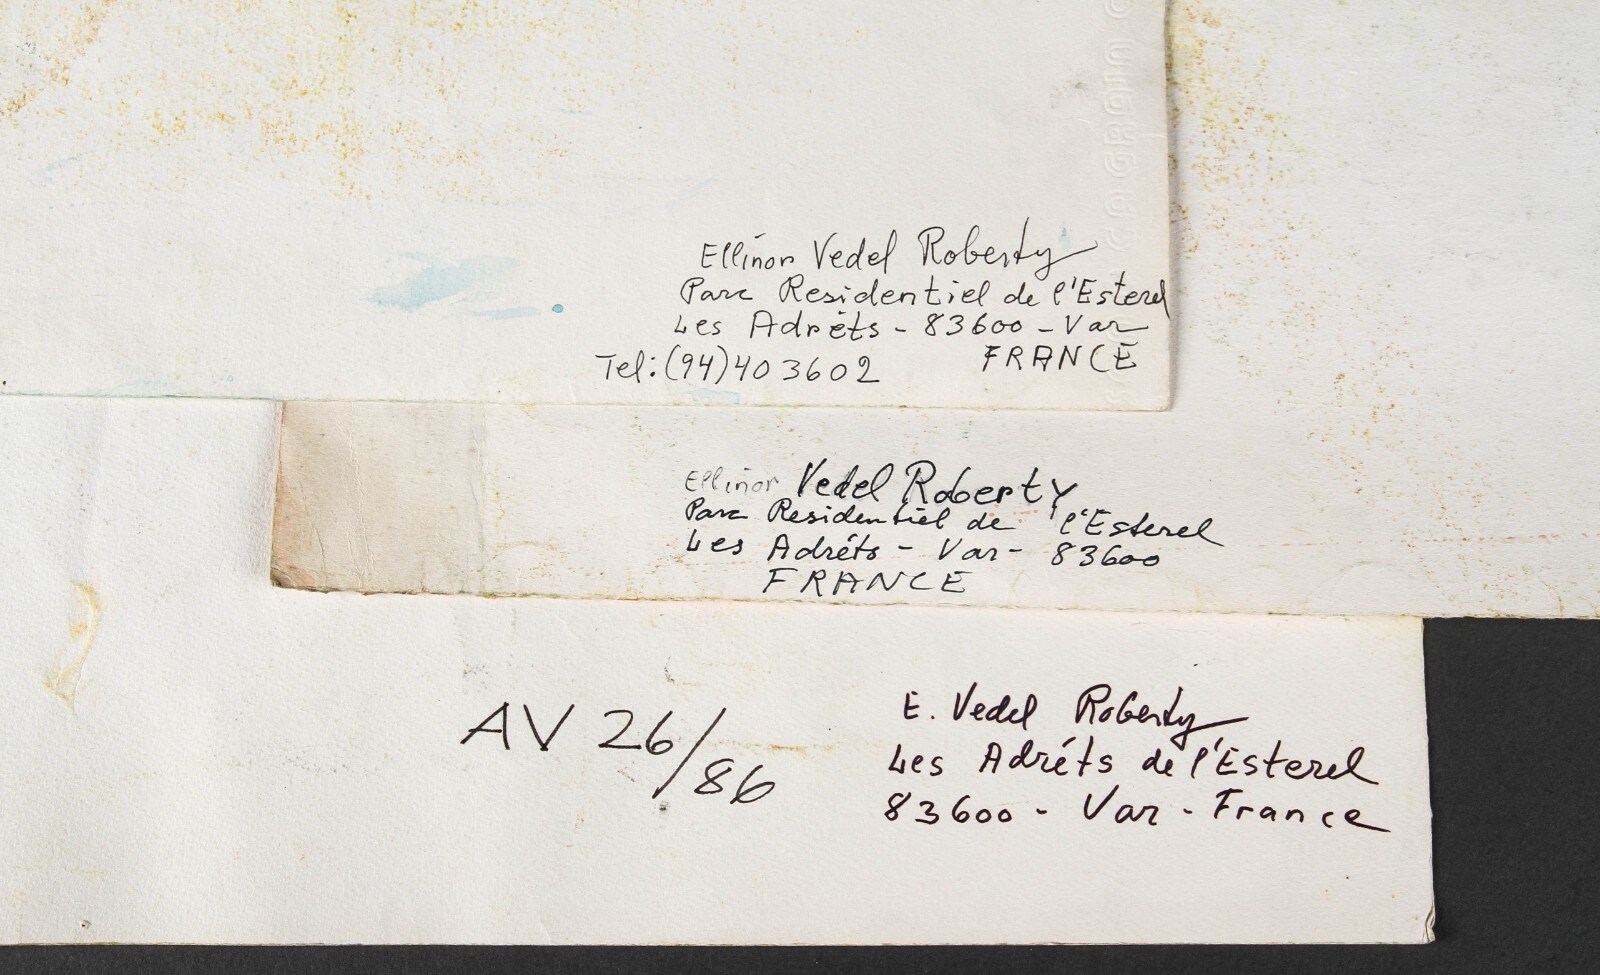 Ellinor Vedel Roberty
Parc Residentiel de l'Esterel
Les Adréts - 83600 - Var
Tel: (94) 403602 FRANCE
Ellinor Vedel Roberty
Parc Residentiel de l'Esterel
Les Adréts - Var - 83600
FRANCE
AV 26/86
E. Vedel Roberty
Les Adréts de l'Esterel
83600 - Var - France